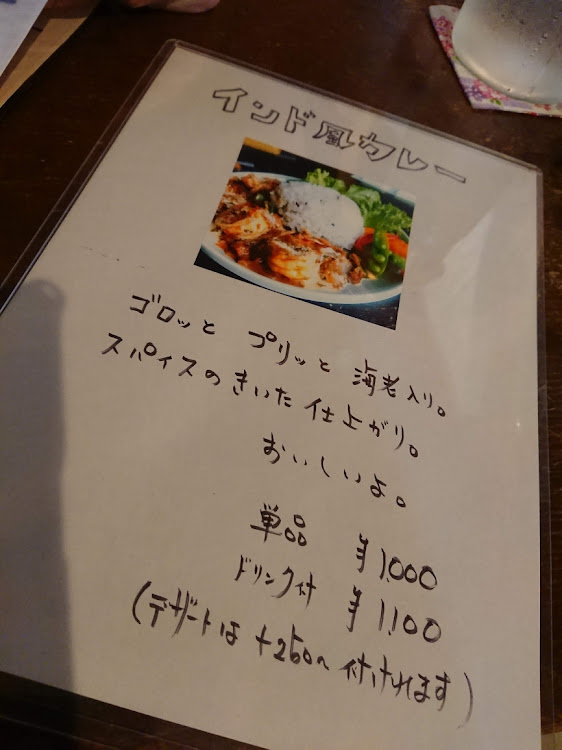 インド風カレー
ゴロッと プリッと 海老入り。
スパイスのきいた 仕上がり。
おいしいよ。
単品 ¥1,000
ドリンク付 ¥1,100
(デザートは +250へ 付けれます)